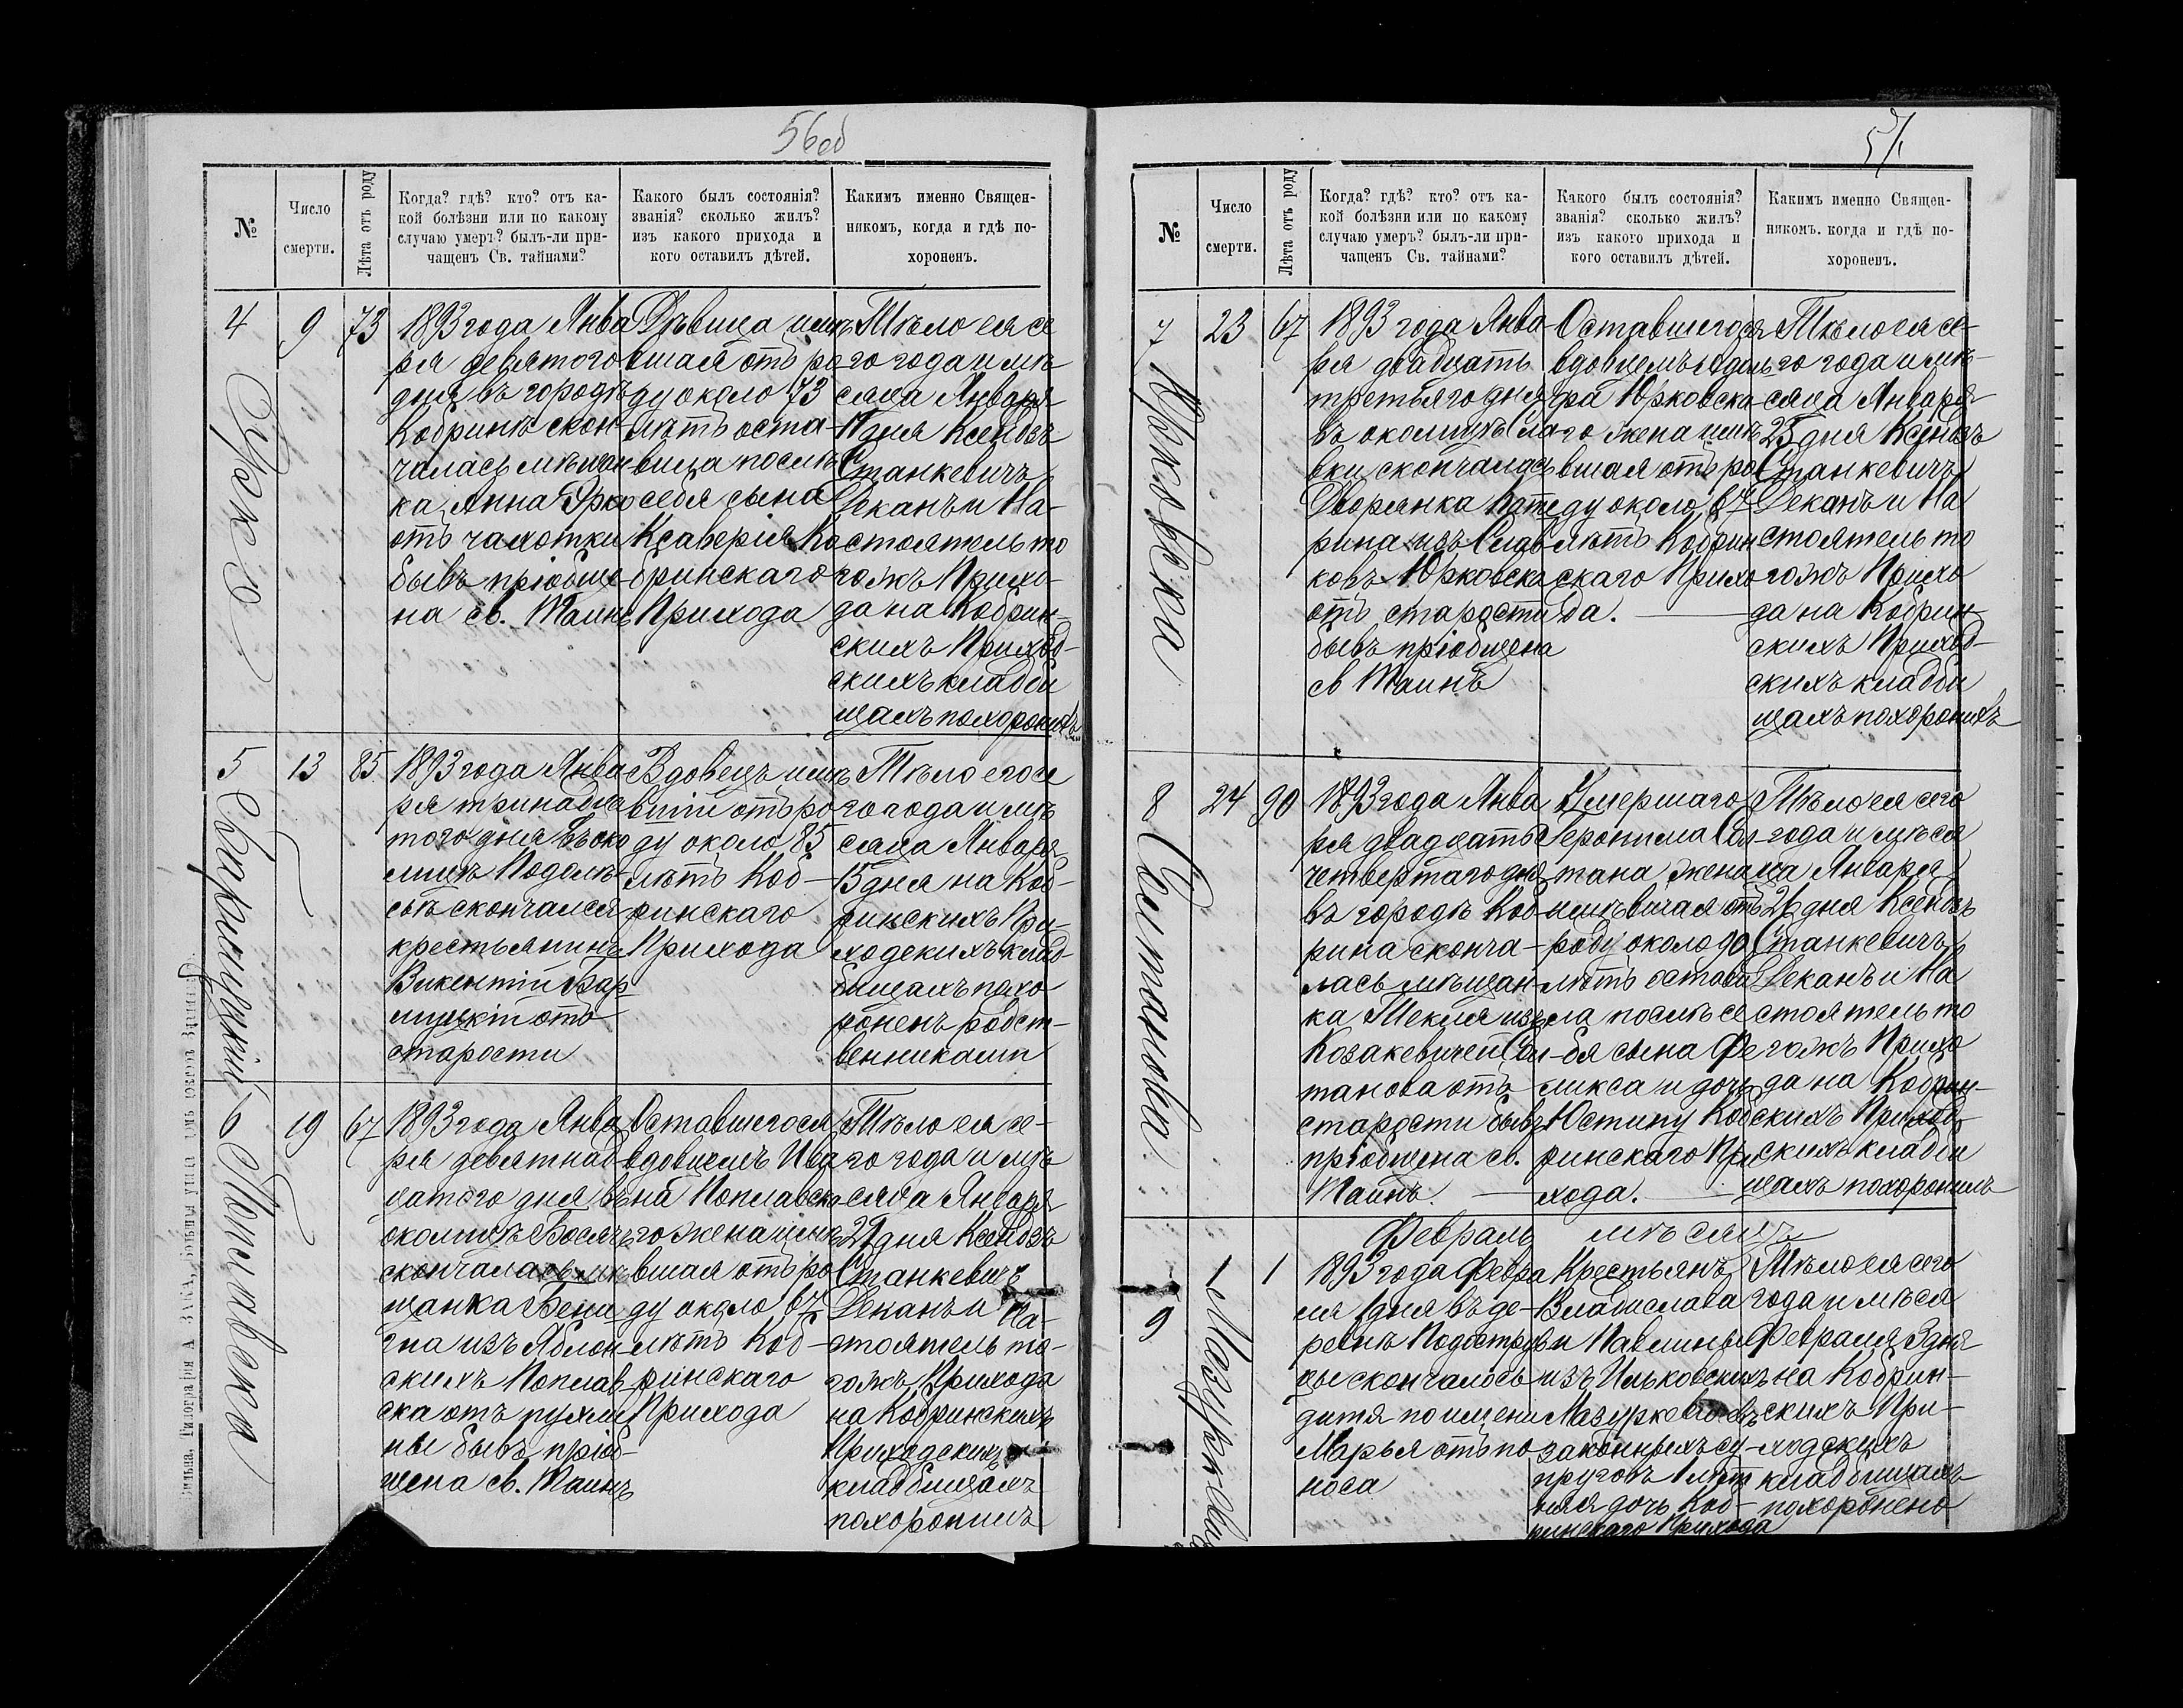 56об
№
Число
смерти.
Лѣта отъ роду
Когда? гдѣ? кто? отъ ка-
кой болѣзни или по какому
случаю умеръ? былъ-ли при-
чащенъ Св. тайнами?
Какого былъ состоянія?
званія? сколько жилъ?
изъ какого прихода и
кого оставилъ дѣтей.
Каким именно Священ-
никомъ, когда и гдѣ по-
хороненъ.
4
9
73
1893 года Янва
ря девятого
дня въ городѣ
Кобринѣ скон
чалась мѣщан
ка Анна
отъ чахотки
бывъ пріобще
на св. Таинъ
Дѣвица имѣ
вшая отъ ро
ду около 73
лѣтъ оста-
вила послѣ
себя сына
Ксаверія Ко
бринскаго
Прихода
Тѣло ея се
го года и мѣ
сяца Января
дня Ксендзъ
Станкевичъ
Деканъ и На-
стоятель то
гожъ Прихо-
да на Кобрин-
скихъ Приход-
скихъ кладби
щахъ похоронилъ
5
13
85
1893 года Янва
ря тринадца
того дня въ око
лицѣ
скончался
крестьянинъ
Викентій Бар
лицкій отъ
старости
Вдовецъ имѣ
вшій отъ ро
ду около 85
лѣтъ Коб-
ринскаго
Прихода
Тѣло его се
го года и мѣ
сяца Января
15 дня на Коб-
ринскихъ При-
ходскихъ клад-
бищахъ похо
роненъ родст-
венниками
6
Поплавска
19
67
1893 года Янва
ря девятнад
цатого дня въ
околицѣ
скончалась мѣ
щанка Бени
гна изъ Яблон
скихъ Поплав
ска отъ пухли
ны бывъ пріоб-
щена св. Таинъ
Оставшегося
вдовцемъ Ива
на Поплавска
го жена имѣ
вшая отъ ро
ду около 67
лѣтъ Коб-
ринскаго
Прихода
Тѣло ея се-
го года и мѣ
сяца Января
21 дня Ксендзъ
Станкевичъ
Деканъ и На-
стоятель то-
гожъ Прихода
на Кобринскихъ
Приходскихъ
кладбищахъ
похоронилъ
№
Число
смерти.
Лѣта отъ роду
Когда? гдѣ? кто? отъ ка-
кой болѣзни или по какому
случаю умеръ? былъ-ли при-
чащенъ Св. тайнами?
Какого былъ состоянія?
званія? сколько жилъ?
изъ какого прихода и
кого оставилъ дѣтей.
Каким именно Священ-
никомъ. когда и гдѣ по-
хороненъ.
7
Юрковска
23
67
1893 года Янва-
ря двадцать
третьяго дня
въ околицѣ
скончалась
Дворянка Кате
рина изъ
Юрковска
отъ старости
бывъ пріобщена
св Таинъ
Оставшегося
вдовцемъ
Юрковска
го жена имѣ
вшая отъ ро
ду около 67
лѣтъ Кобрин
скаго Прихо
да.
Тѣло ея се-
го года и мѣ-
сяца Января
25 дня Ксендзъ
Станкевичъ
Деканъ и На
стоятель то
гожъ Прихо
да на Кобрин-
скихъ Приход-
скихъ кладби
щахъ похоронилъ
8
Солтанова
24
90
1893 года Янва
ря двадцать
четвертаго дня
въ городѣ Коб
рина сконча-
лась мѣщан-
ка Текля изъ
Козакевичей Сол-
танова отъ
старости бывъ
пріобщена св.
Таинъ.
Умершаго
Іеронима Сол-
тана жена
имѣвшая отъ
роду около 90
лѣтъ остави
ла послѣ се
бя сына Фе
ликса и дочь
Юстину Коб
ринскаго При
хода.
Тѣло ея сего
года и мѣся
ца Января
26 дня Ксендзъ
Станкевичъ
Деканъ и На
стоятель то
гожъ Прихо
да на Кобрин-
скихъ Приход-
скихъ кладби
щахъ похоронилъ
Февраль мѣсяцъ
9
1
1
1893 года Февра
ля 1 дня въ де-
ревнѣ
скончалось
дитя по имени
Марья отъ по
носа
Крестьянъ
Владислава
и Павлины
изъ Ильковскихъ
Мазуркевичевъ
законныхъ су-
пруговъ 1 лѣт
няя дочь Коб-
ринскаго Прихода
Тѣло ея сего
года и мѣся
Февраля 3 дня
на Кобрин-
скихъ При-
ходскихъ
кладбищахъ
похоронено